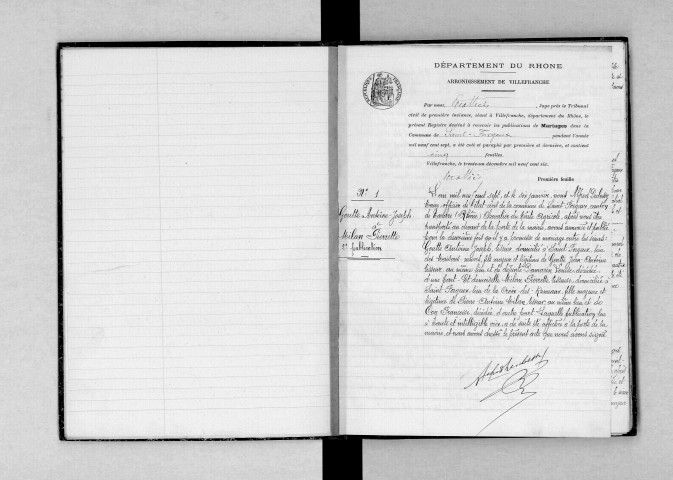 DÉPARTEMENT DU RHONE
ARRONDISSEMENT DE VILLEFRANCHE
Par nous, , Juge près le Tribunal
civil de première instance, séant à Villefranche, département du Rhône, le
présent Registre destiné à recevoir les publications de Mariages dans la
Commune de Saint-Forgeux pendant l'année
mil neuf cent sept, a été coté et paraphé par première et dernière, et contient
cinq feuilles.
Villefranche, le treize décembre mil neuf cent six.
Première feuille
N° 1
Goutte Antoine-Joseph
à
Milan Pierrette
1e publication
L'an mil neuf cent sept, et le six janvier, nous
officier de l'état civil de la commune de Saint-Forgeux, canton
de Tarare (Rhône) Chevalier du Mérite Agricole, après nous être
transporté au devant de la porte de la mairie, avons annoncé et publié
pour la première fois qu'il y a promesse de mariage entre les sieurs
Goutte Antoine Joseph, tisseur, domicilié à Saint-Forgeux,
lieu des , fils majeur et légitime de Goutte Jean Antoine
tisseur au même lieu et de défunte décédée
d'une part. Et demoiselle Milan Pierrette, tisseuse, domiciliée à
Saint-Forgeux, lieu de la Croix des Rameaux, fille majeure et
légitime de Pierre Antoine Milan, tisseur au même lieu et de
Françoise, décédée, d'autre part. Laquelle publication lue
à haute et intelligible voix, a de suite été affichée à la porte de la
mairie, et nous avons dressé le présent acte que nous avons signé